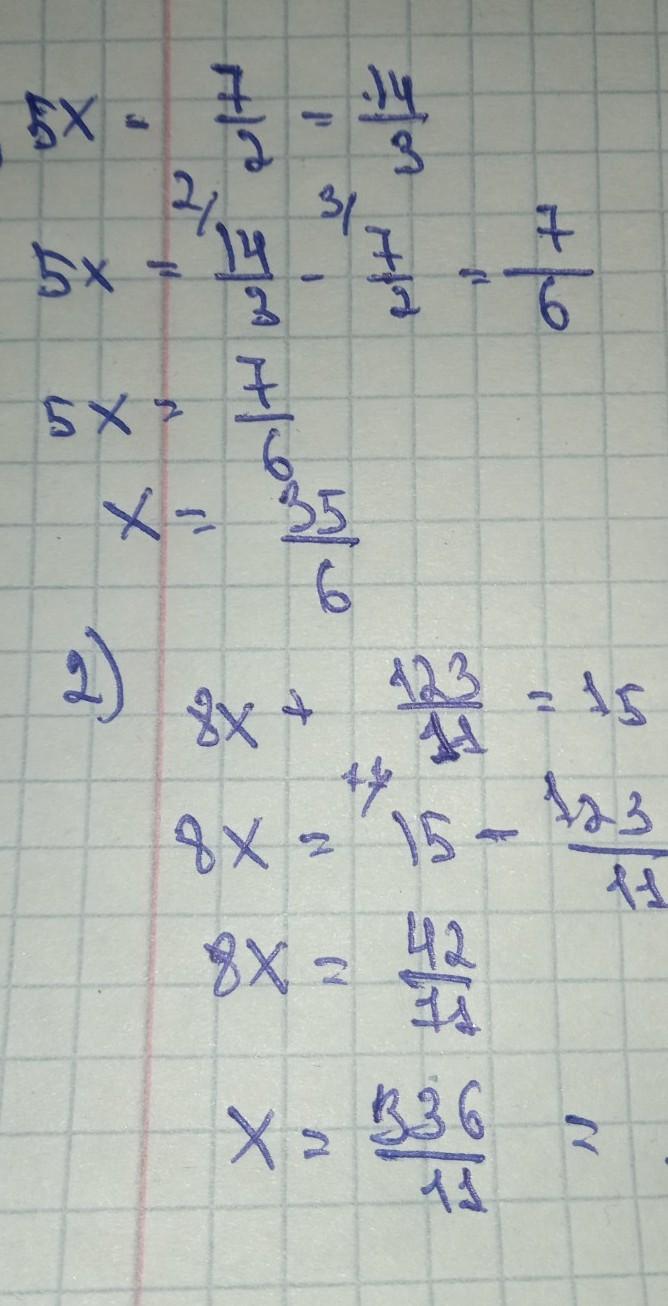 5x - 7/2 = 14/3
2/ 3/
5x = 14/3 - 7/2 = 7/6
5x = 7/6
x = 35/6
2) 8x + 123/11 = 15
11/
8x = 15 - 123/11
8x = 42/11
x = 336/11 =